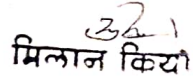 मिलान किया